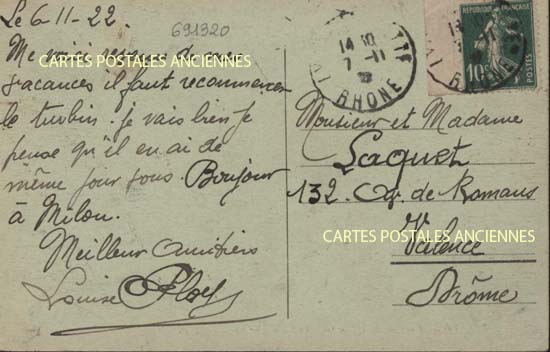 Le 6-11-22.
691320
Me voici revenue de mes
vacances il faut recommencer
le turbin. je vais bien je
pense qu'il en ai de
même pour vous. Bonjour
à Milou.
Meilleur amitiers
Louise
CARTES POSTALES ANCIENNES
14 10
7 -11
RHONE
REPUBLIQUE FRANÇAISE
10c
POSTES
RHONE
Monsieur et Madame
Laquet
132. Av. de Romans
CARTES POSTALES ANCIENNES
Valence
Drôme